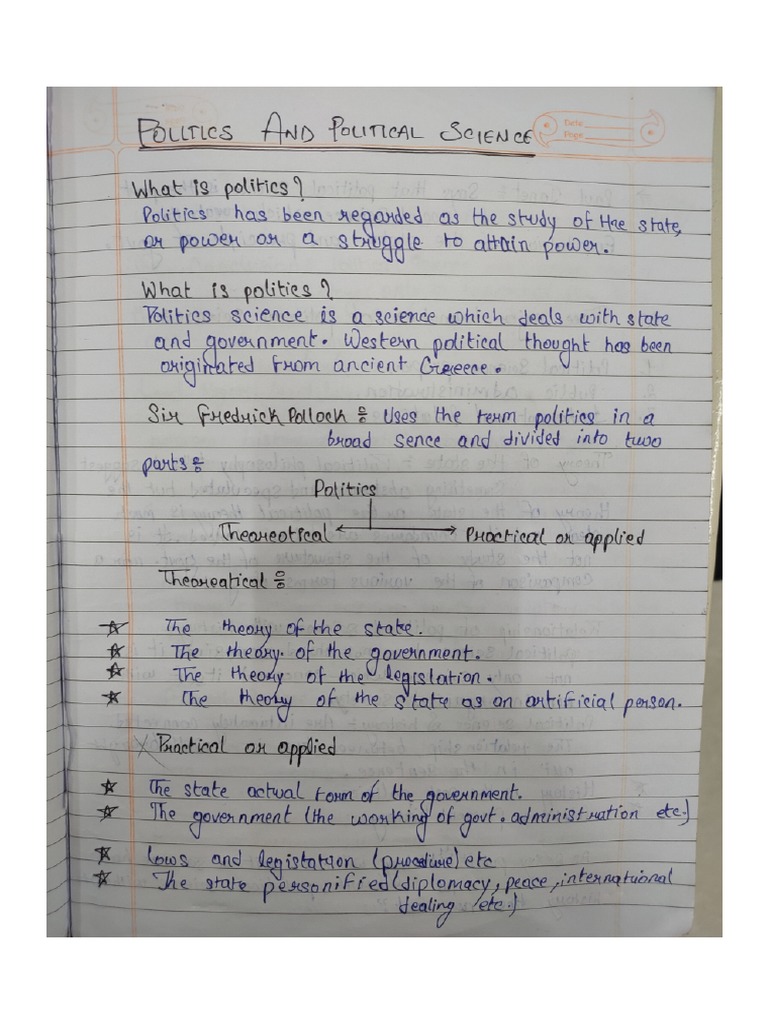 POLITICS AND POLITICAL SCIENCE
Date
Page
What is politics?
Politics has been regarded as the study of the state,
or power or a struggle to attain power.
What is politics?
Politics science is a science which deals with state
and government. Western political thought has been
originated from ancient Greece.
Sir Fredrick Pollock : Uses the term politics in a
broad sence and divided into two
parts :
Politics
Theoreotical Practical or applied
Theoreatical :
☆ The theory of the state.
☆ The theory of the government.
☆ The theory of the legislation.
☆ The theory of the state as an artificial person.
Practical or applied
☆ The state actual form of the government.
☆ The government (the working of govt. administration etc.)
☆ laws and legistation (procedure) etc
☆ The state personified (diplomacy, peace, international
dealing etc.)